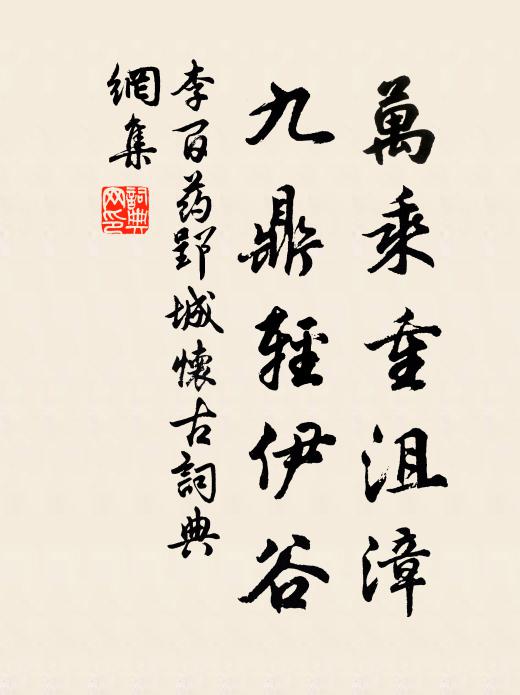 萬乘重沮漳
九鼎輕伊谷
李百药郢城懷古詞典
網集
詞典網印